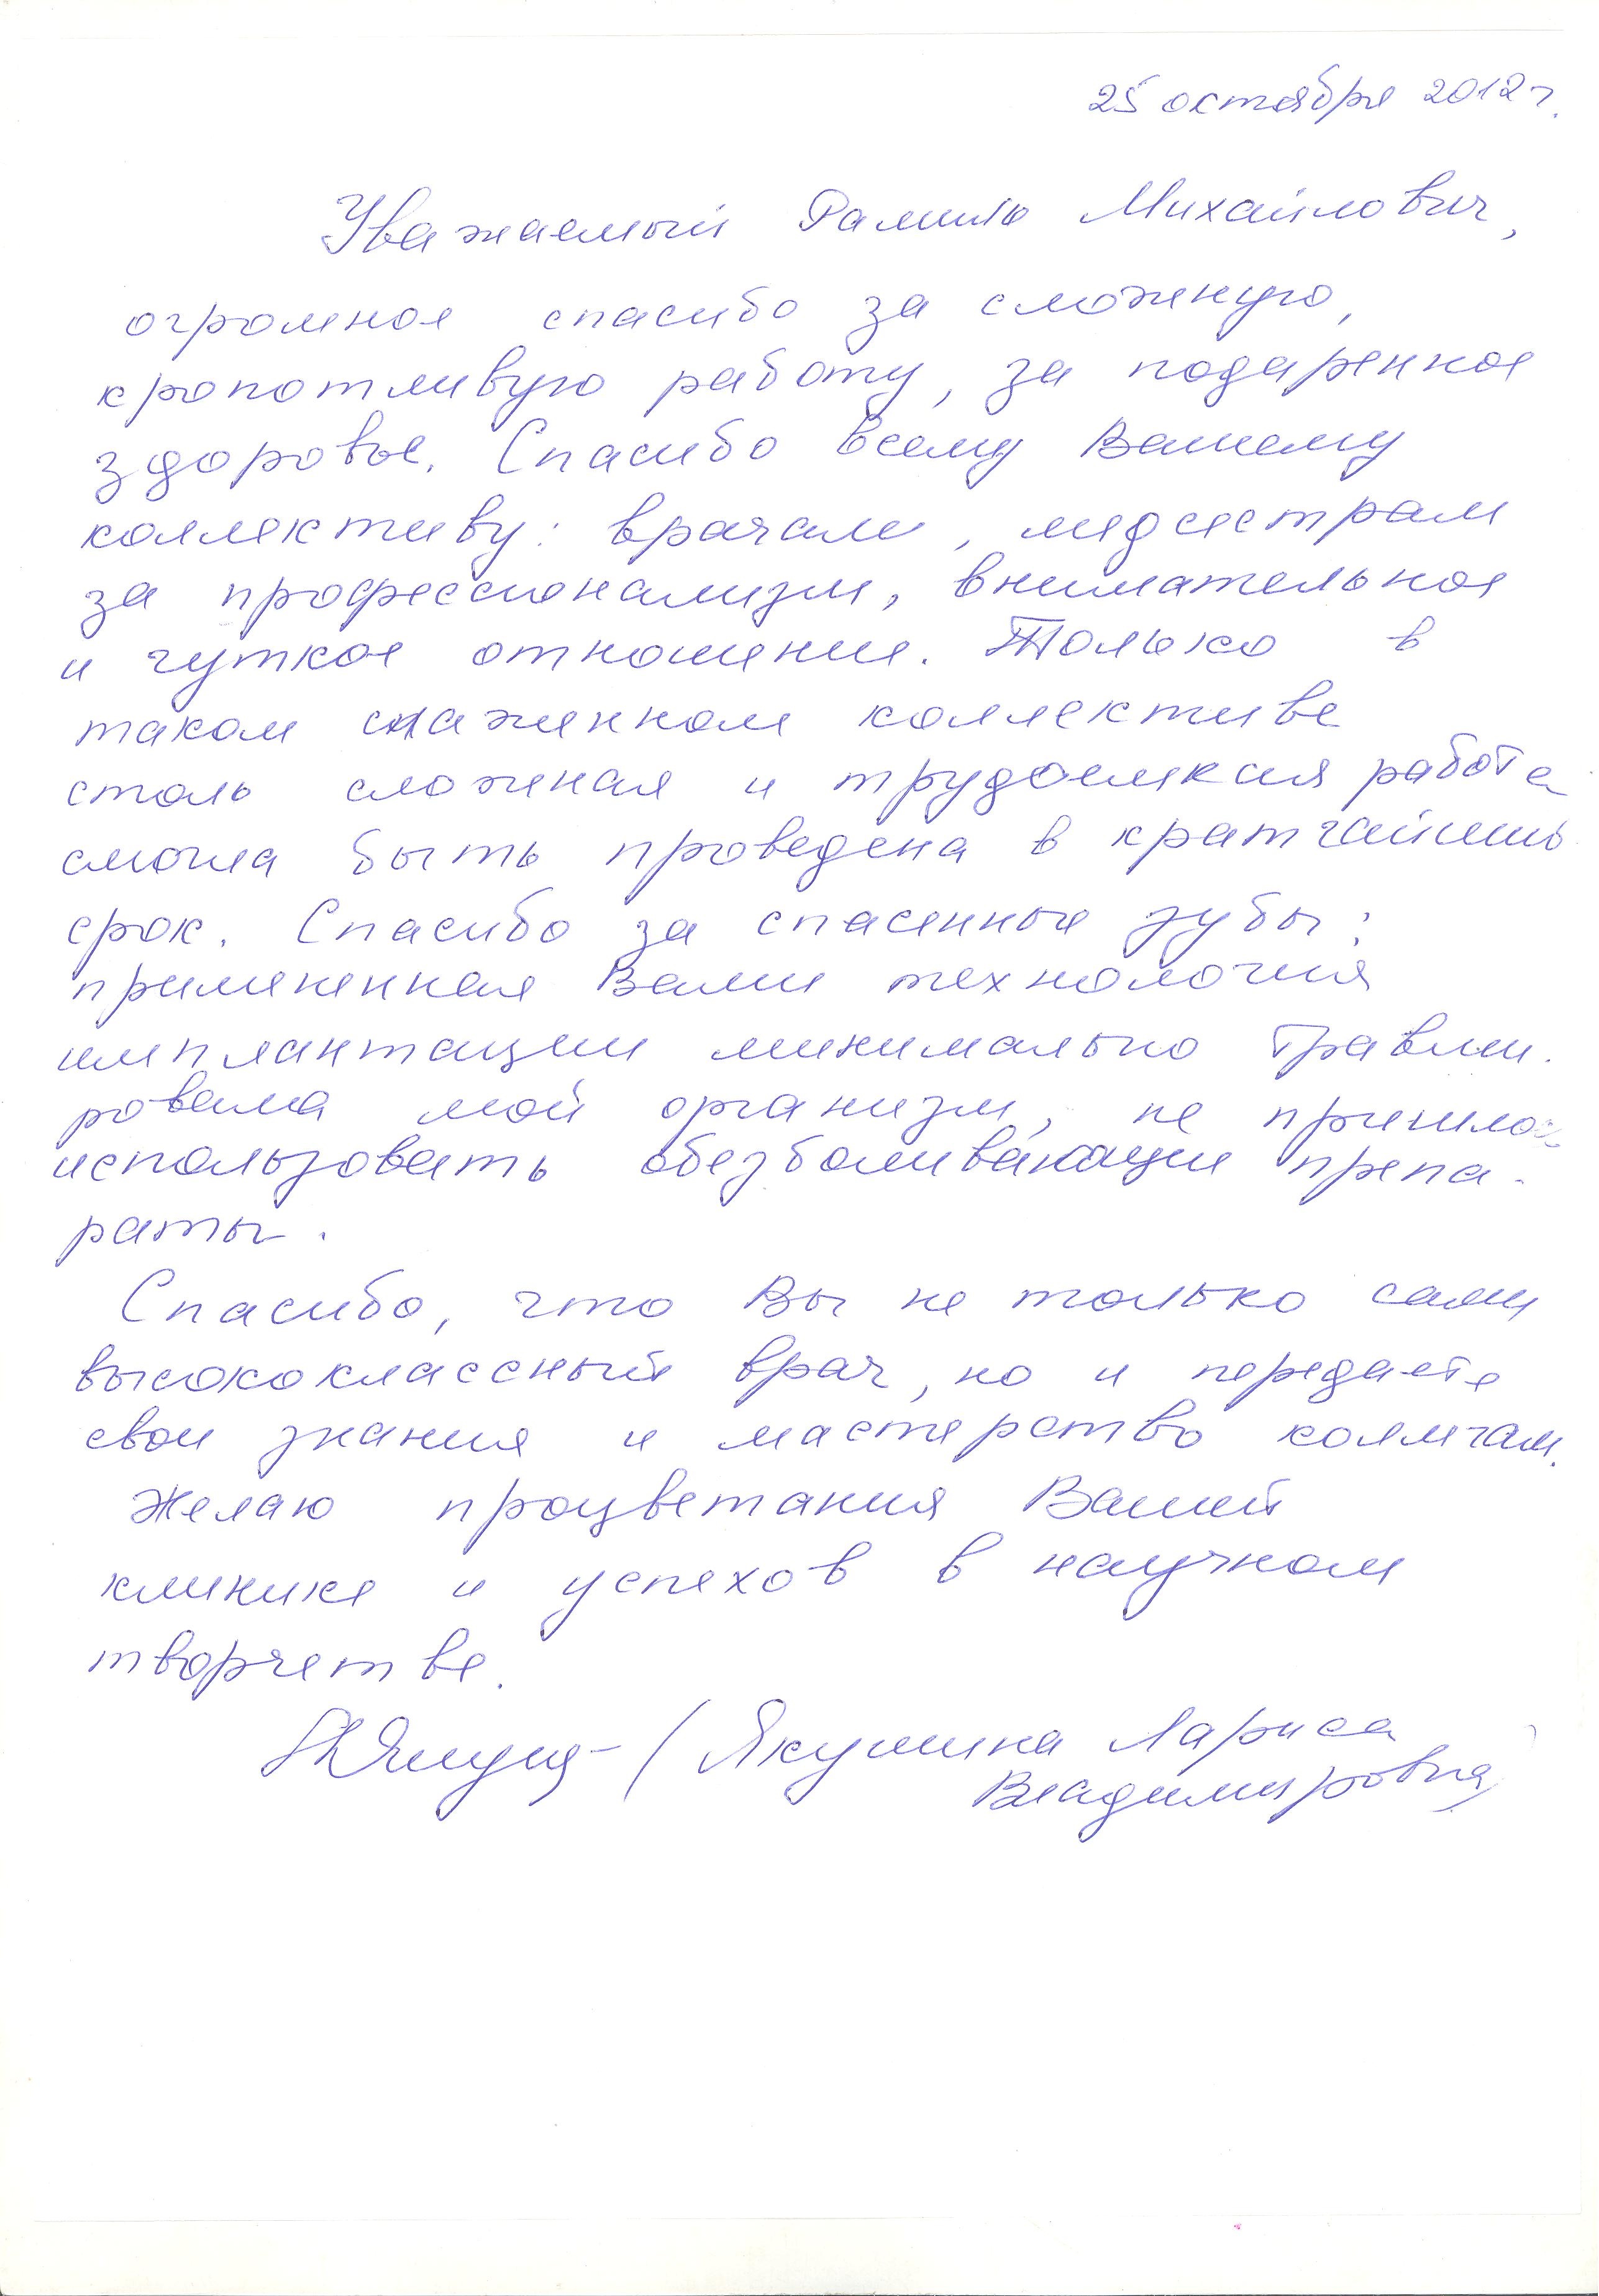 25 октября 2012 г.
Уважаемый Рамиль Михайлович,
огромное спасибо за сложную,
кропотливую работу, за подаренное
здоровье. Спасибо всему Вашему
коллективу: врачам, медсестрам
за профессионализм, внимательное
и чуткое отношение. Только в
таком слаженном коллективе
столь сложная и трудоемкая работа
смогла быть проведена в кратчайший
срок. Спасибо за спасенные зубы;
примененная Вами технология
имплантации минимально травми-
ровала мой организм, не пришлось
использовать обезболивающие препа-
раты.
Спасибо, что Вы не только сами
высококлассный врач, но и передаете
свои знания и мастерство коллегам.
Желаю процветания Вашей
клинике и успехов в научном
творчестве.
(Якушина Лариса
Владимировна)